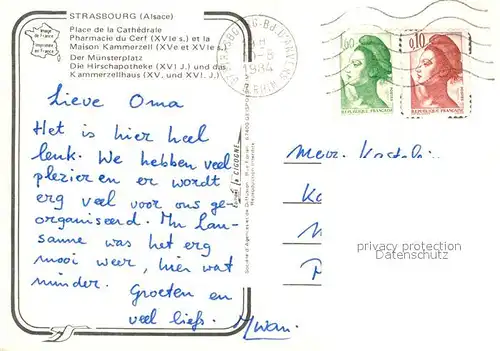 STRASBOURG (Alsace)
Place de la Cathédrale
Pharmacie du Cerf (XVIe s.) et la
Maison Kammerzell (XVe et XVIe s.)
Der Münsterplatz
Die Hirschapotheke (XVI J.) und das
Kammerzellhaus (XV. und XVI. J.)
Image de France
Imprimée en France
1984
1,60
0,10
REPUBLIQUE FRANÇAISE
REPUBLIQUE FRANÇAISE
Lieve Oma
Het is hier heel
leuk. We hebben veel
plezier en er wordt
erg veel voor ons ge-
organiseerd. In Lau-
sanne was het erg
mooi weer, hier wat
minder. Groeten en
veel liefs.
la CIGOGNE
Reproduction interdite
Mevr.
privacy protection
Datenschutz